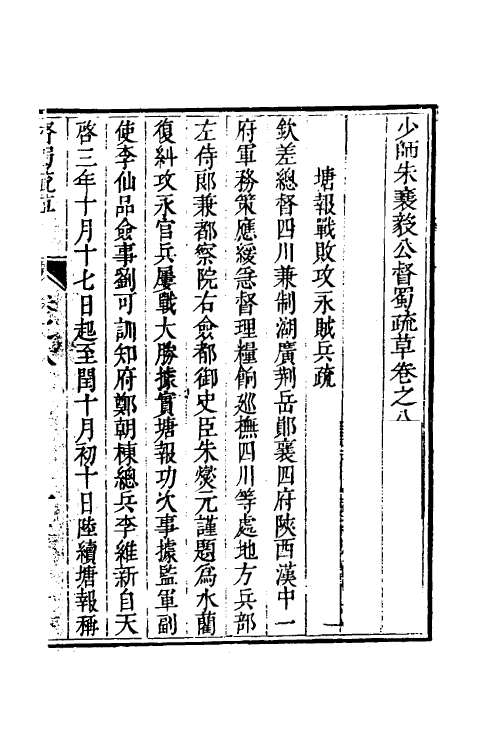 少師朱襄毅公督蜀疏草卷之八
塘報戰敗攻永賊兵疏
欽差總督四川兼制湖廣荆岳鄖襄四府陜西漢中一
府軍務策應緩急督理糧餉廵撫四川等處地方兵部
左侍郎兼都察院右僉都御史臣朱燮元謹題爲水藺
復糾攻永官兵屢戰大勝據實塘報功次事據監軍副
使李仙品僉事劉可訓知府鄭朝棟總兵李維新自天
啓三年十月十七日起至閏十月初十日陸續塘報稱
督蜀疏草